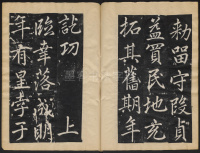 勑留守段貞
益買民地充
拓其舊期年
訖功　上
臨幸落成明
年有星孛于